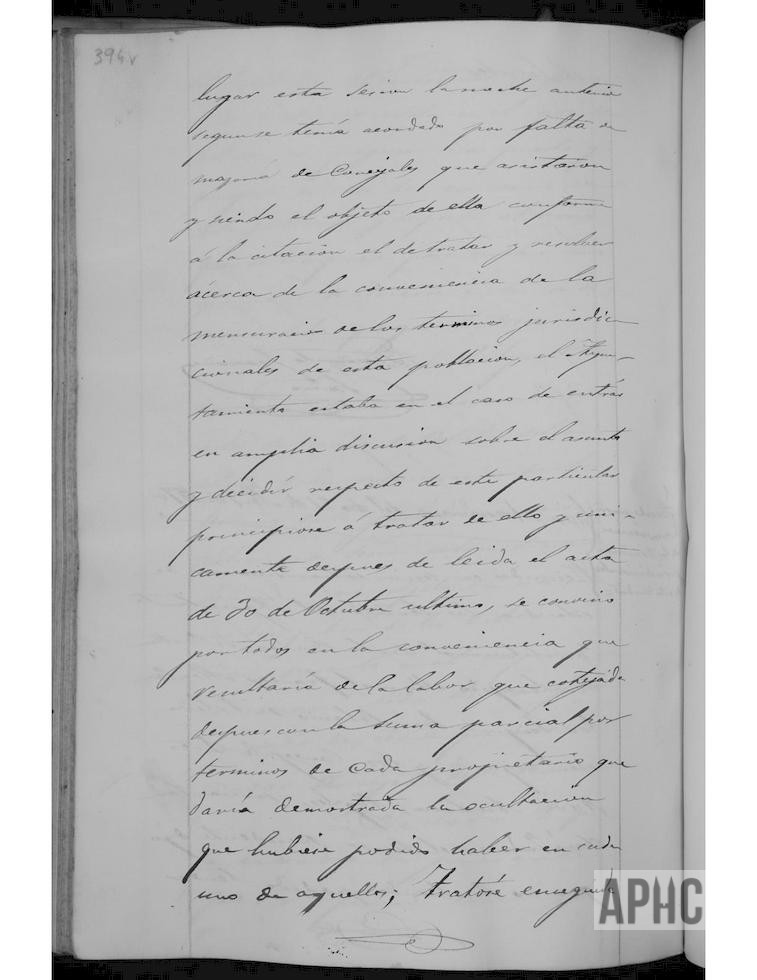 394v
lugar esta sesion la noche anterior
segun se tenía acordado por falta de
mayoria de Concejales que asistieron
y siendo el objeto de ella conforme
á la citacion el de tratar y resolver
acerca de la conveniencia de la
mensuracion de los terminos jurisdic-
cionales de esta poblacion, el Ayun-
tamiento estaba en el caso de entrar
en amplia discusion sobre el asunto
y decidir respecto de este particular
principiose á tratar de ello y uni-
camente despues de leida el acta
de 30 de Octubre ultimo, se convino
por todos en la conveniencia que
resultaría de la labor que cotejada
despues con la suma parcial por
terminos de cada propietario que
daría demostrada la ocultacion
que hubiese podido haber en cada
uno de aquellos; Tratóse enseguida
APHC